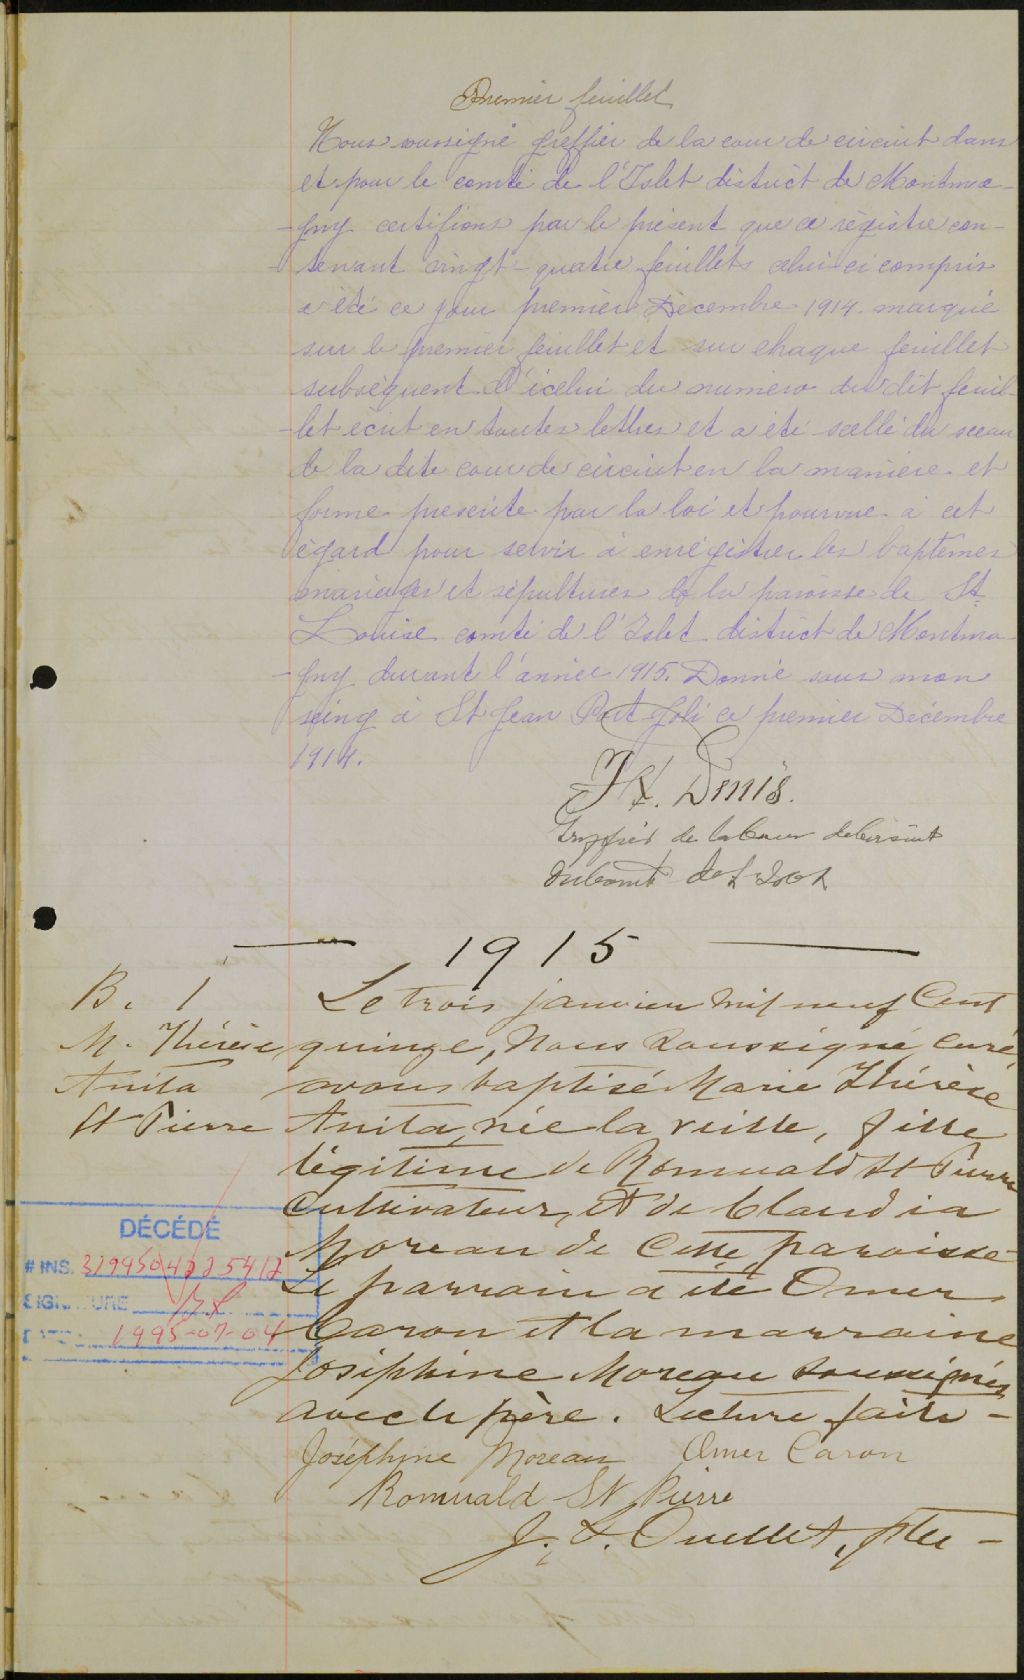 Premier feuillet
Nous soussigné greffier de la cour de circuit dans
et pour le comté de l'Islet district de Montma-
-gny certifions par le présent que ce régistre con-
tenant vingt-quatre feuillets celui ci compris
a été ce jour premier Décembre 1914. marqué
sur le premier feuillet et sur chaque feuillet
subséquent d'icelui du numéro du dit feuil-
-let écrit en toutes lettres et a été scellé du sceau
de la dite cour de circuit en la manière et
forme prescrite par la loi et pourvue à cet
égard pour servir à enrégistrer les baptêmes
mariages et sépultures de la paroisse de St.
Louise comté de l'Islet district de Montma-
-gny durant l'année 1915. Donné sous mon
seing à St Jean Port Joli ce premier Décembre
1914.
Greffier de la Cour de Circuit
du Comté de L'Islet
— 1915 —
B. 1
M. Thérèse
Anita
St Pierre
Le trois janvier mil neuf cent
quinze, Nous soussigné, curé,
avons baptisé Marie Thérèse
Anita, née la veille, fille
légitime de Romuald St Pierre
Cultivateur, et de Claudia
Moreau de cette paroisse-
Le parrain a été Omer
Caron et la marraine
Joséphine Moreau soussignés
avec le père. Lecture faite -
Joséphine Moreau Omer Caron
Romuald St Pierre
J. Ouellet, ptre -
DÉCÉDÉ
# INS. 3199504225412
SIGNATURE
DATE 1995-07-04